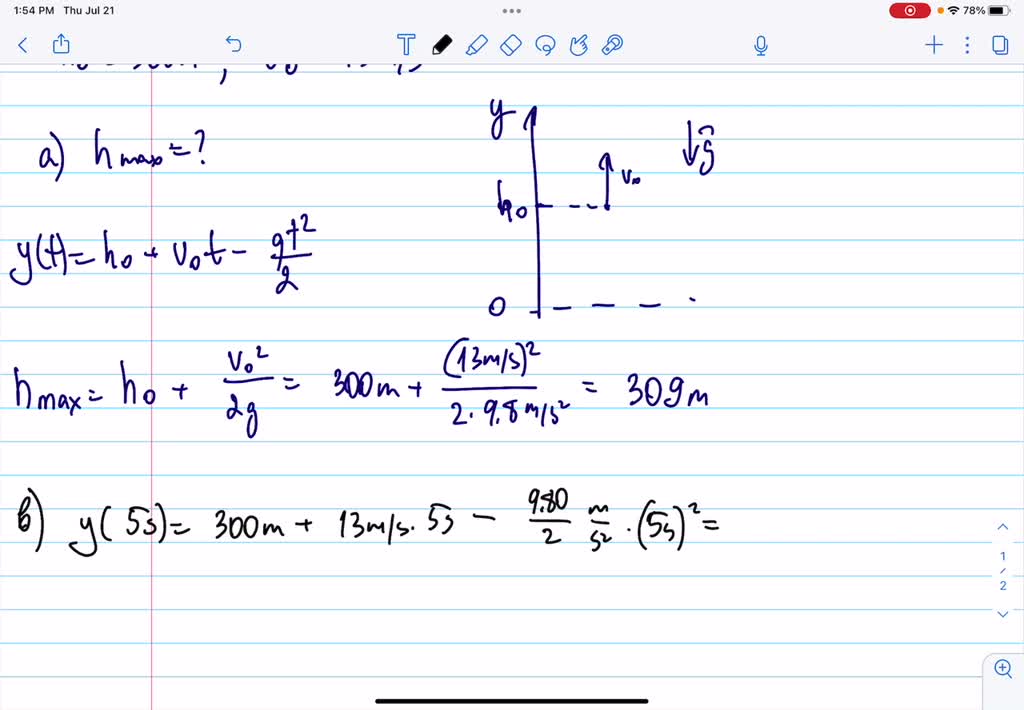 1:54 PM Thu Jul 21
78%
a) h max = ?
y
h0
v0
g
0
y(t) = h0 + v0t - gt²/2
h max = h0 + v0²/2g = 300m + (13m/s)²/2·9.8m/s² = 309m
b) y(5s) = 300m + 13m/s · 5s - 9.80/2 m/s² · (5s)² =
1
/
2